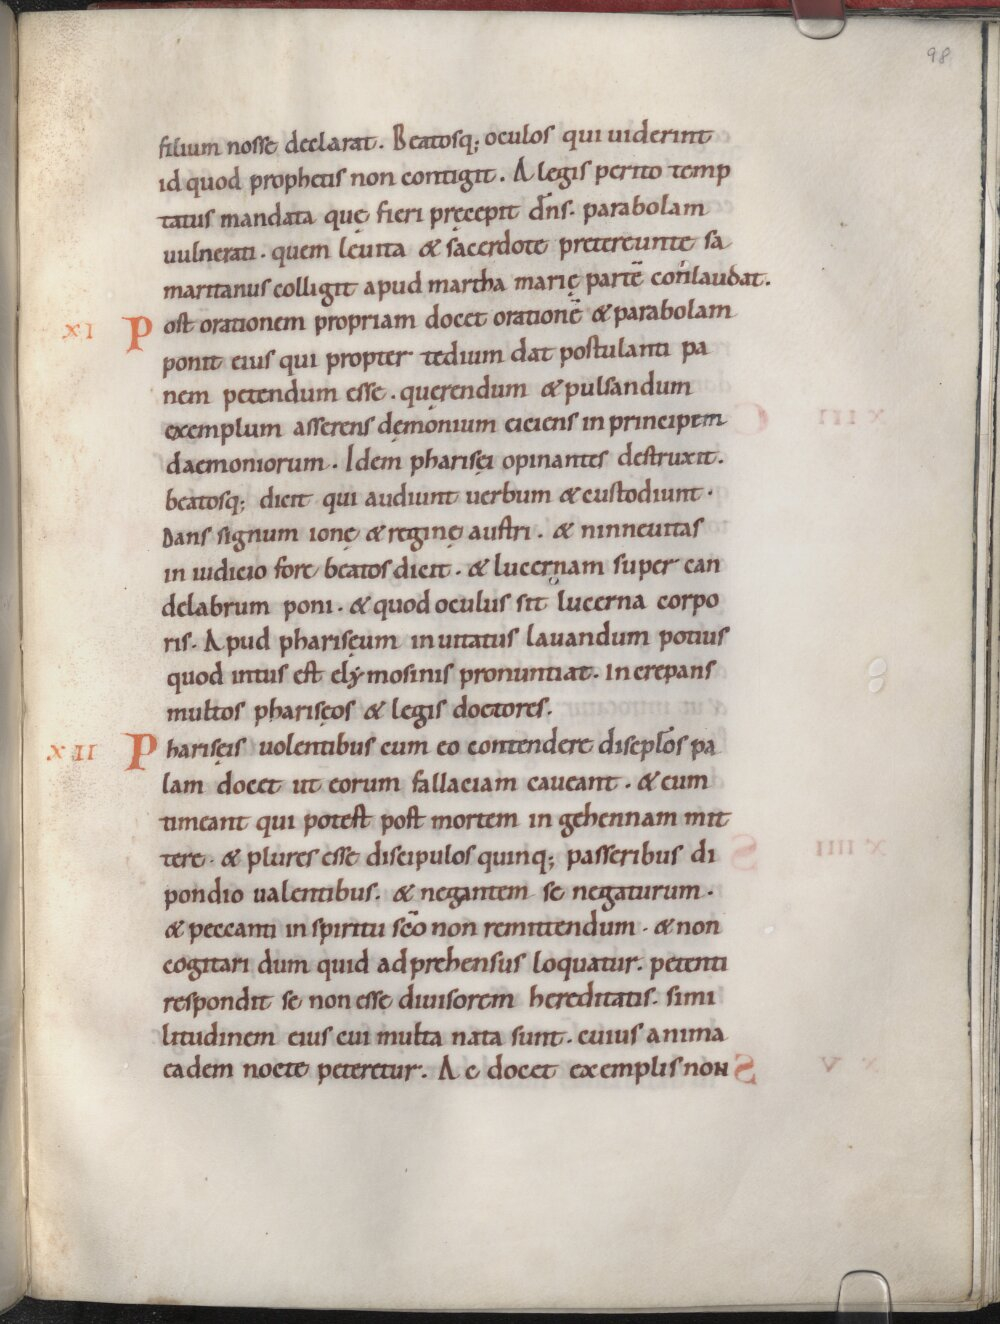 98
filium nosse declarat. Beatosq; oculos qui uiderint
id quod prophetis non contigit. A legis perito temp
tatus mandata quę fieri pręcepit dn̄s. parabolam
uulnerati. quem leuita & sacerdote pretereunte sa
maritanus colligit apud martha marię partē conlaudat.
XI Post orationem propriam docet orationē & parabolam
ponit eius qui propter tedium dat postulanti pa
nem petendum esse. querendum & pulsandum
exemplum asserens dęmonium eiciens in principem
daemoniorum. Idem pharisęi opinantes destruxit.
beatosq; dicit qui audiunt uerbum & custodiunt.
Dans signum ionę & reginę austri. & nineuitas
in iudicio fore beatos dicit. & lucernam super can
delabrum poni. & quod oculus sit lucerna corpo
ris. Apud pharisęum inuitatus lauandum potius
quod intus est elẏmosinis pronuntiat. Increpans
multos pharisęos & legis doctores.
XII Pharisęis uolentibus cum eo contendere discipl̄os pa
lam docet ut eorum fallaciam caueant. & eum
timeant qui potest post mortem in gehennam mit
tere. & plures esse discipulos quinq; passeribus di
pondio ualentibus. & negantem se negaturum.
& peccanti in spiritu sc̄o non remittendum. & non
cogitari dum quid adprehensus loquatur. petenti
respondit se non esse diuisorem hereditatis. simi
litudinem eius cui multa nata sunt. cuius anima
eadem nocte peteretur. Ac docet exemplis non